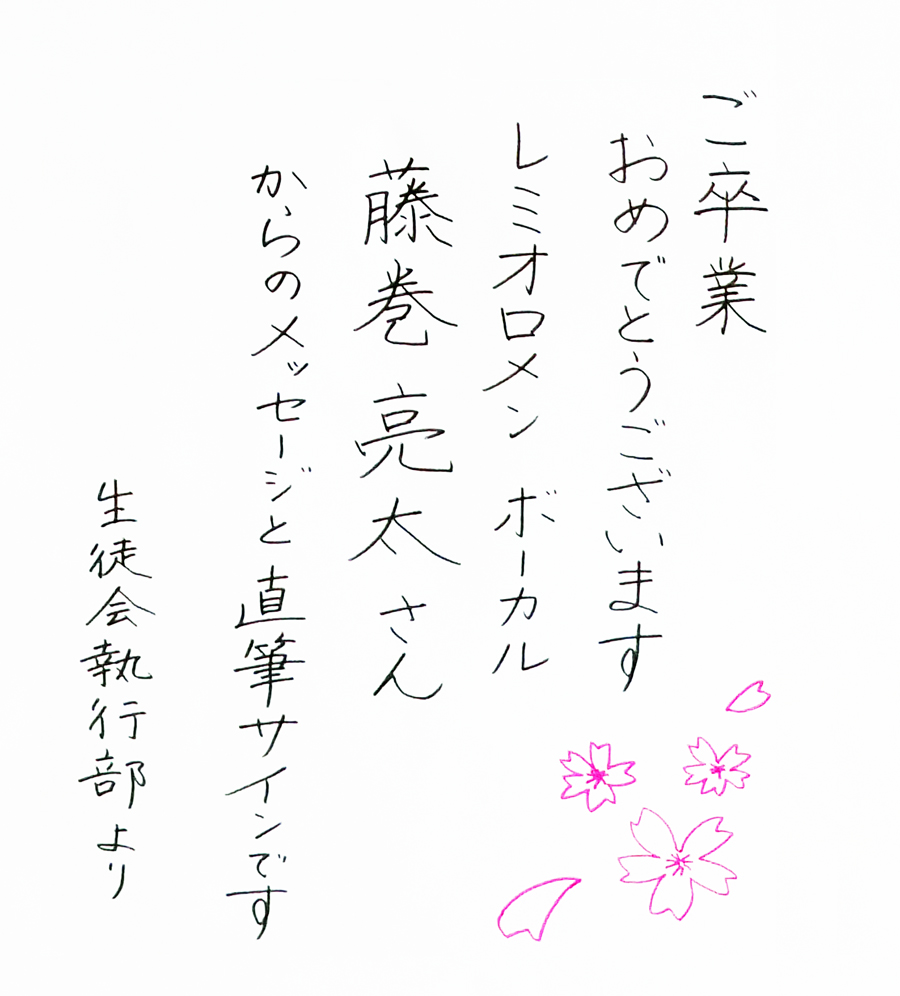 ご卒業
おめでとうございます
レミオロメン ボーカル
藤巻 亮太さん
からのメッセージと直筆サインです
生徒会執行部より